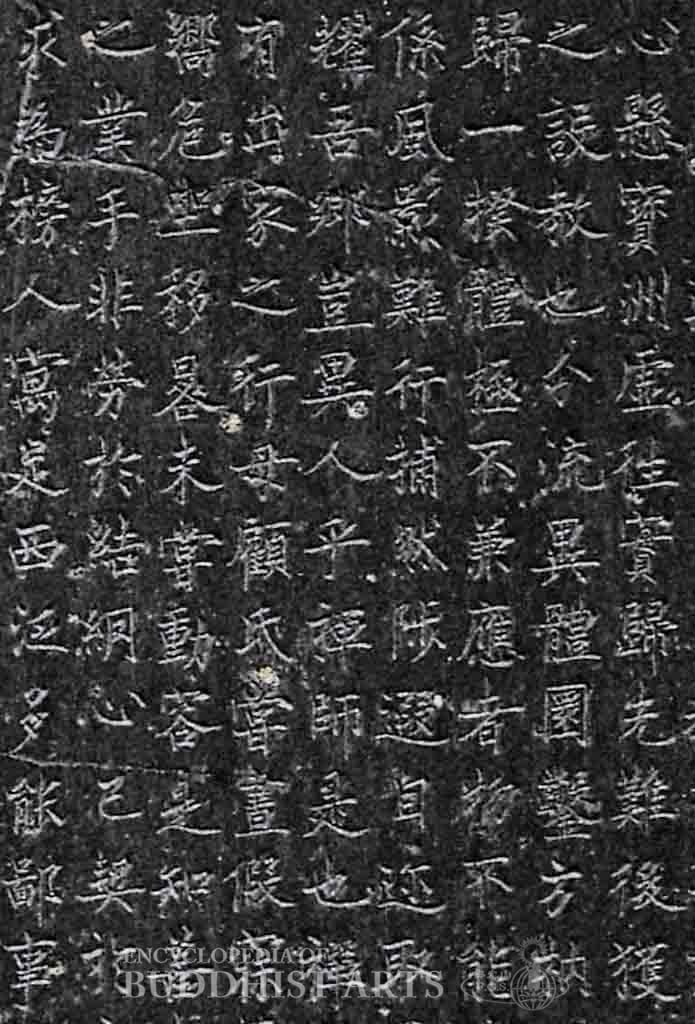 心懸寶洲虛往實歸先難後獲
之設教也分流異體圜鑿方枘
歸一揆體極不兼應者物不能
係風影難行捕然陟遐自迩取
耀吾鄉豈異人乎禪師是也禪
有出家之行母顧氏甞晝假寐
嚮危坐移晷未甞動容是知善
之業手非勞於結網心已契於
求為榜人寓足西泛多能鄙事
ENCYCLOPEDIA OF
BUDDHIST ARTS